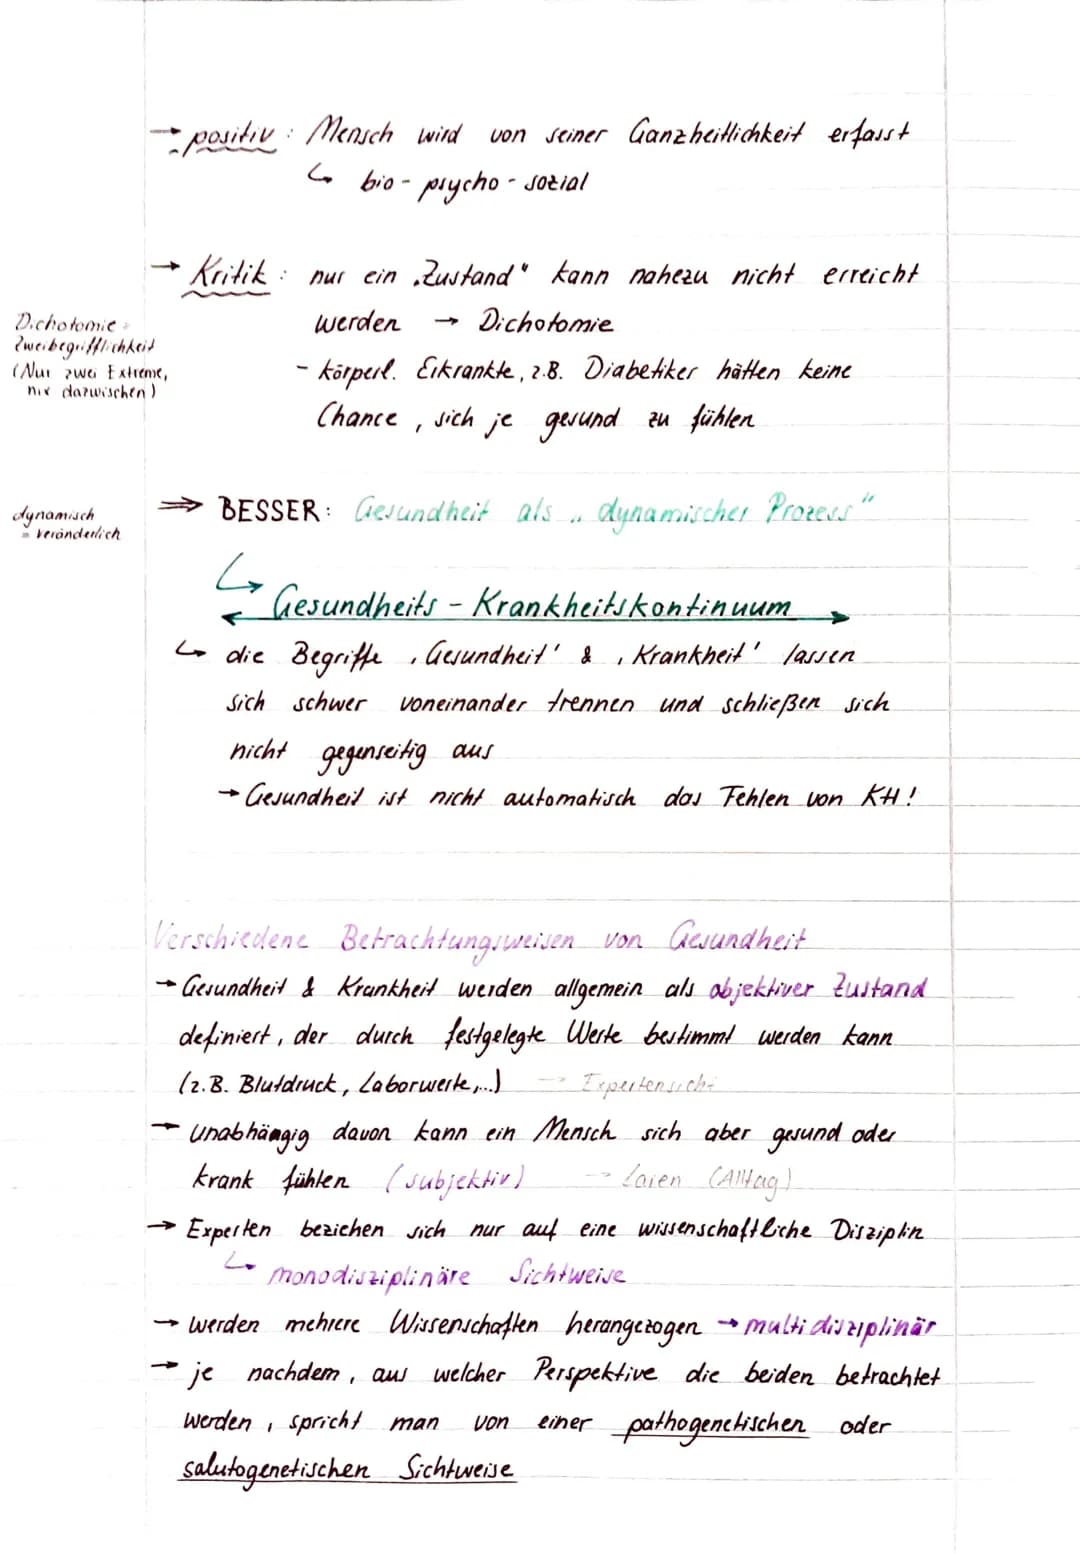 → positiv: Mensch wird von seiner Ganzheitlichkeit erfasst
↳ bio - psycho - sozial
→ Kritik: nur ein „Zustand" kann nahezu nicht erreicht
werden → Dichotomie
Dichotomie =
Zweibegrifflichkeit
(Nur zwei Extreme,
nix dazwischen)
- körperl. Erkrankte, z.B. Diabetiker hätten keine
Chance, sich je gesund zu fühlen
⇒ BESSER: Gesundheit als „dynamischer Prozess"
dynamisch
= veränderlich
↳ Gesundheits - Krankheitskontinuum
↳ die Begriffe ‚Gesundheit' & ‚Krankheit' lassen
sich schwer voneinander trennen und schließen sich
nicht gegenseitig aus
→ Gesundheit ist nicht automatisch das Fehlen von KH!
Verschiedene Betrachtungsweisen von Gesundheit
→ Gesundheit & Krankheit werden allgemein als objektiver Zustand
definiert, der durch festgelegte Werte bestimmt werden kann
(z.B. Blutdruck, Laborwerte,...) → Expertensicht
→ Unabhängig davon kann ein Mensch sich aber gesund oder
krank fühlen (subjektiv) → Laien (Alltag)
→ Experten beziehen sich nur auf eine wissenschaftliche Disziplin
↳ monodisziplinäre Sichtweise
→ werden mehrere Wissenschaften herangezogen → multidisziplinär
→ je nachdem, aus welcher Perspektive die beiden betrachtet
werden, spricht man von einer pathogenetischen oder
salutogenetischen Sichtweise